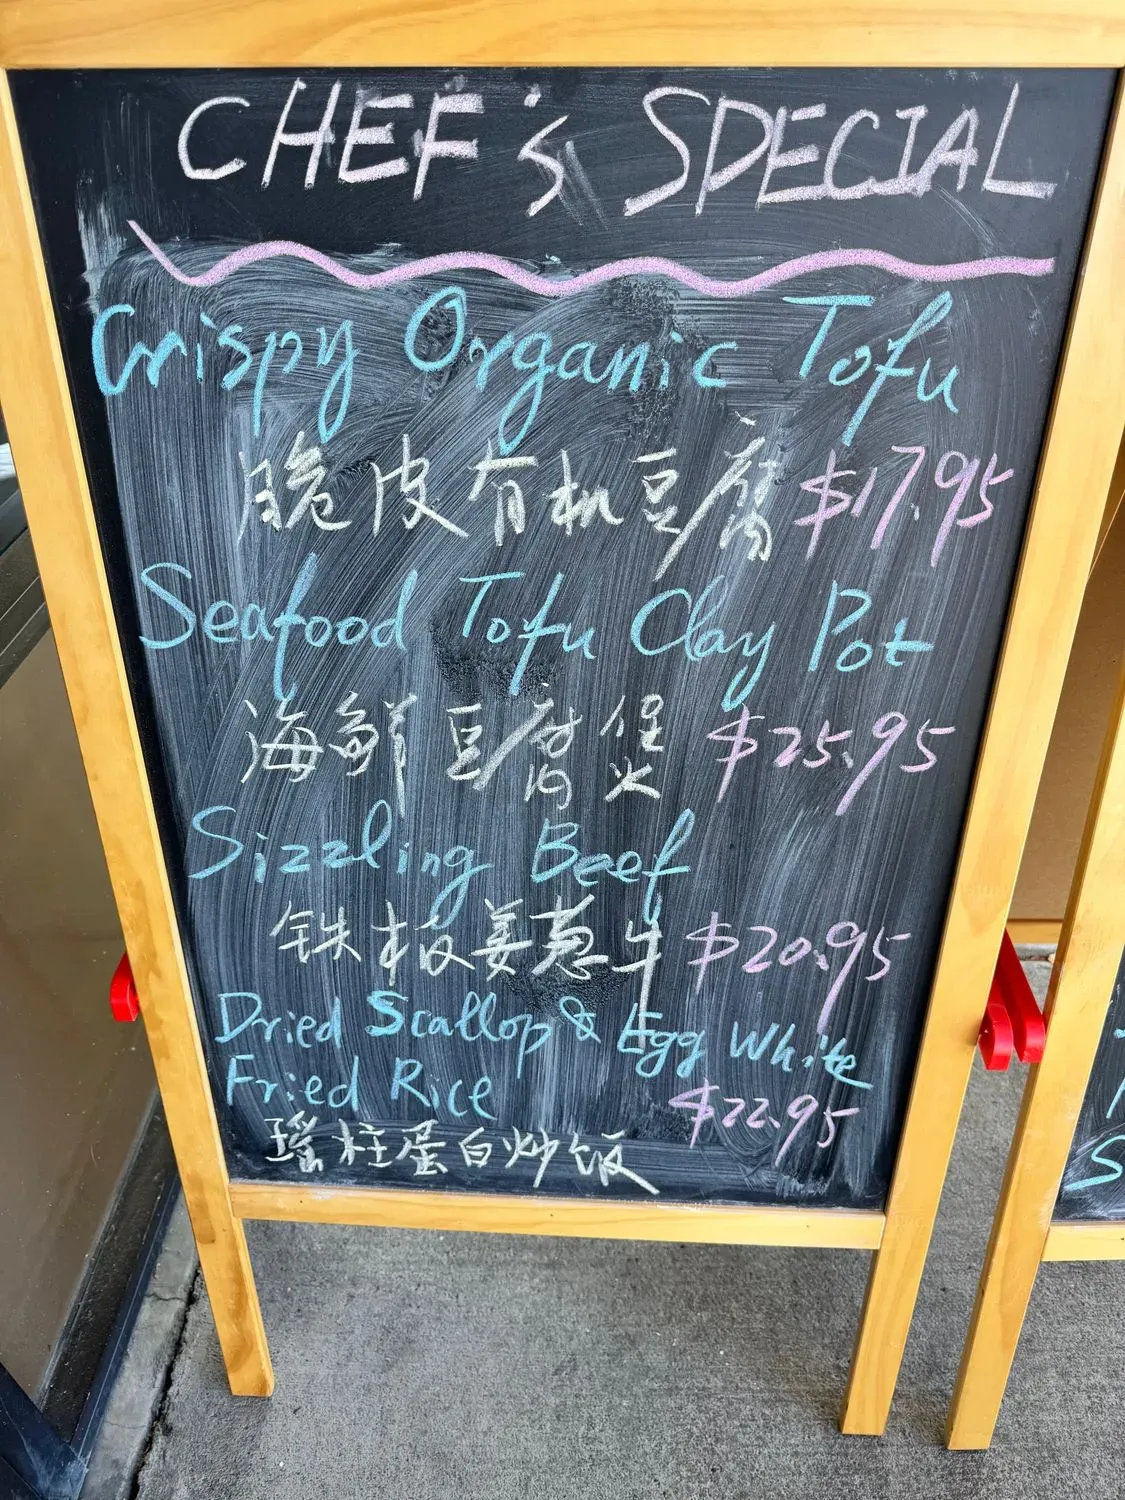 CHEF's SPECIAL
Crispy Organic Tofu
脆皮有机豆腐 $17.95
Seafood Tofu Clay Pot
海鲜豆腐煲 $25.95
Sizzling Beef
铁板姜葱牛 $20.95
Dried Scallop & Egg White
Fried Rice $22.95
瑶柱蛋白炒饭